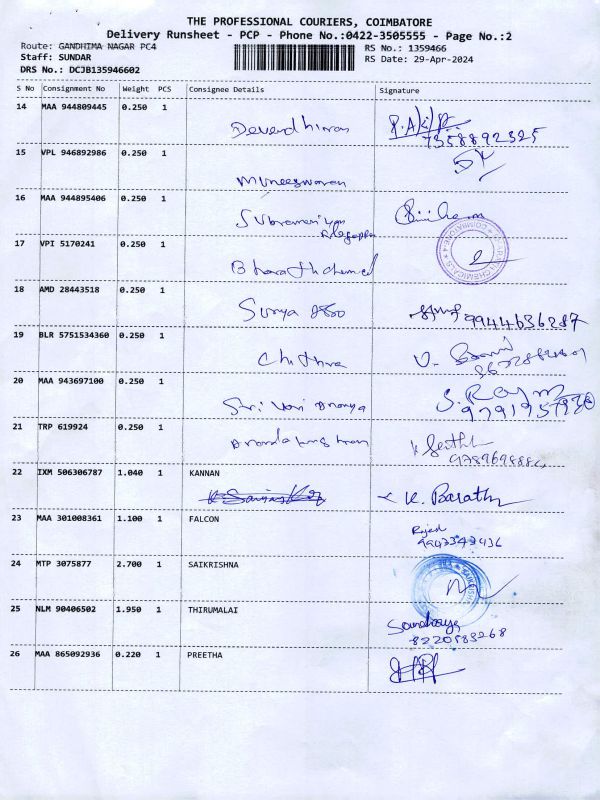 THE PROFESSIONAL COURIERS, COIMBATORE
Delivery Runsheet - PCP - Phone No.:0422-3505555 - Page No.:2
Route: GANDHIMA NAGAR PC4 RS No.: 1359466
Staff: SUNDAR RS Date: 29-Apr-2024
DRS No.: DCJB135946602
S No Consignment No Weight PCS Consignee Details Signature
14 MAA 944809445 0.250 1
Devendhiran
7358892325
15 VPL 946892986 0.250 1
Muneeswaran
16 MAA 944895406 0.250 1
Subramaniyan
17 VPI 5170241 0.250 1
Bharath chemical
18 AMD 28443518 0.250 1
Surya 9944636287
19 BLR 5751534360 0.250 1
Chithra
20 MAA 943697100 0.250 1
Sri Hari Ananya
21 TRP 619924 0.250 1
22 IXM 506306787 1.040 1 KANNAN
K. Barath
23 MAA 301008361 1.100 1 FALCON
Rajesh
24 MTP 3075877 2.700 1 SAIKRISHNA
25 NLM 90406502 1.950 1 THIRUMALAI
Soundarya
8220583268
26 MAA 865092936 0.220 1 PREETHA